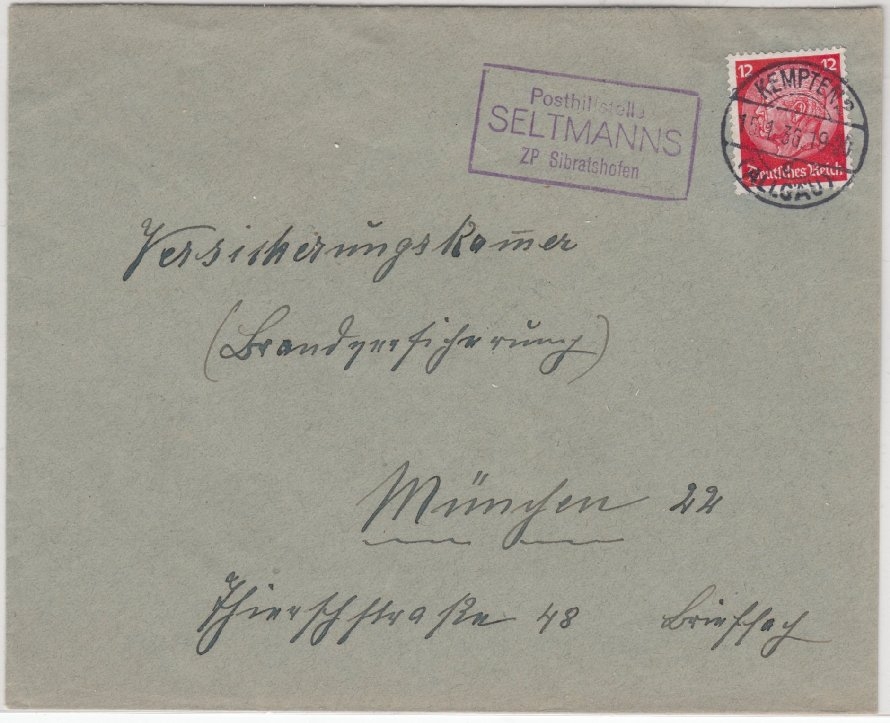 Posthilfstelle
SELTMANNS
ZP Sibratshofen
12 12
Deutsches Reich
KEMPTEN
(ALLGÄU)
Versicherungskam̅er
(Brandversicherung)
München 22
Thierschstraße 48 Brieffach